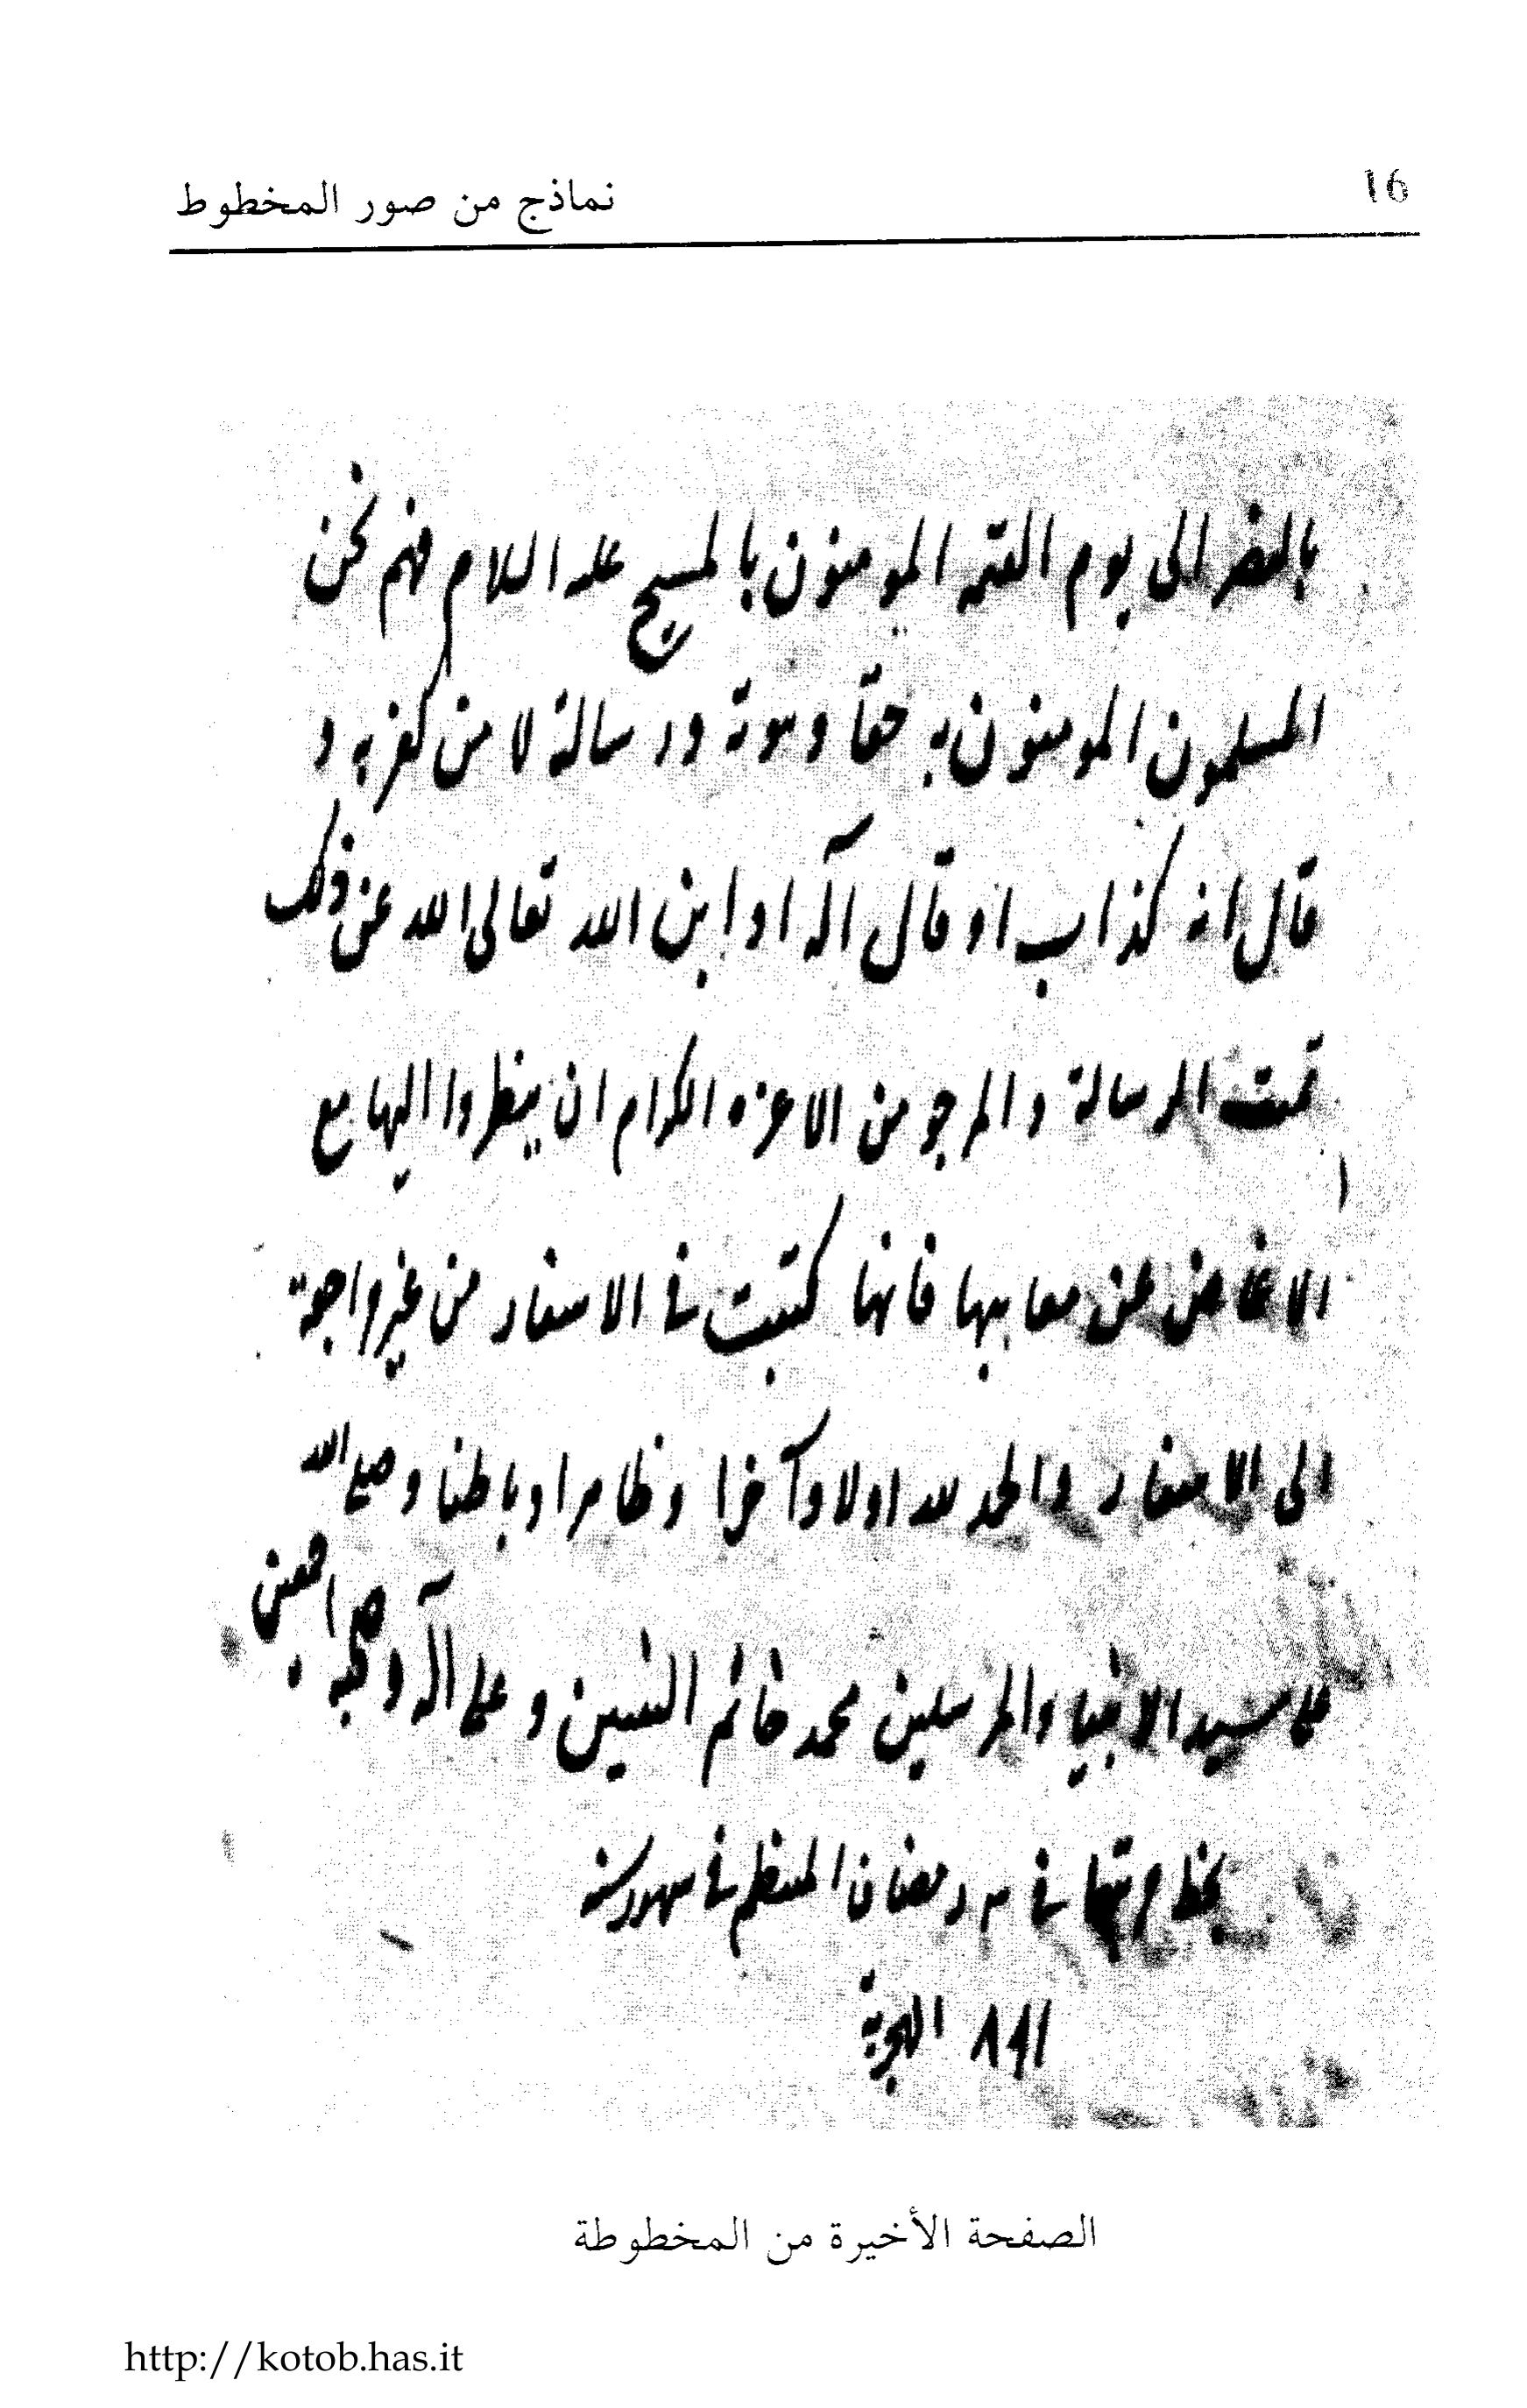 نماذج من صور المخطوط
16
بالنصر الى يوم القيمه المومنون بالمسيح عليه السلام فهم نحن
المسلمون المومنون به حقا ونبوته ورسالة لا من كفر به و
قال انه كذاب او قال آله او ابن الله تعالى الله عن ذلك
تمت الرسالة والمرجو من الاعزه الكرام ان ينظروا اليها مع
الاغماض عن معايبها فانها كتبت في الاسفار من غير مراجعة
الى الاسفار والحمد لله اولا وآخرا وظاهرا وباطنا وصلى الله
على سيد الانبياء والمرسلين محمد خاتم النبيين وعلى آله وصحبه اجمعين
في رمضان المنتظم في سنة
الهجرية
الصفحة الأخيرة من المخطوطة
http://kotob.has.it